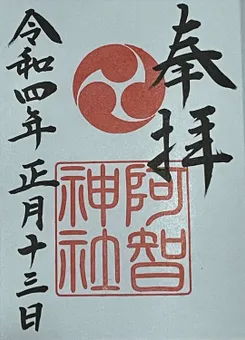 奉拝
阿智
神社
令和四年 正月十三日